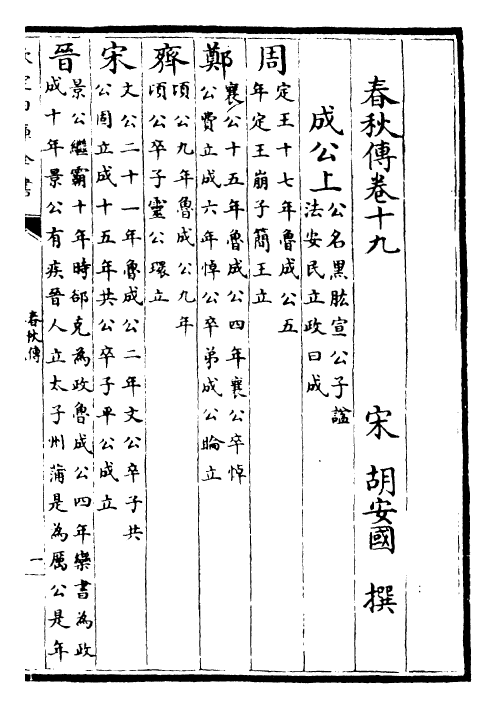 春秋傳卷十九
宋 胡安國 撰
成公上 公名黑肱宣公子諡
法安民立政曰成
周 定王十七年魯成公五
年定王崩子簡王立
鄭 襄公十五年魯成公四年襄公卒悼
公費立成六年悼公卒弟成公睔立
齊 頃公九年魯成公九年
頃公卒子靈公環立
宋 文公二十一年魯成公二年文公卒子共
公固立成十五年共公卒子平公成立
晉 景公繼霸十年時郤克為政魯成公四年欒書為政
成十年景公有疾晉人立太子州蒲是為厲公是年
春秋傳
一